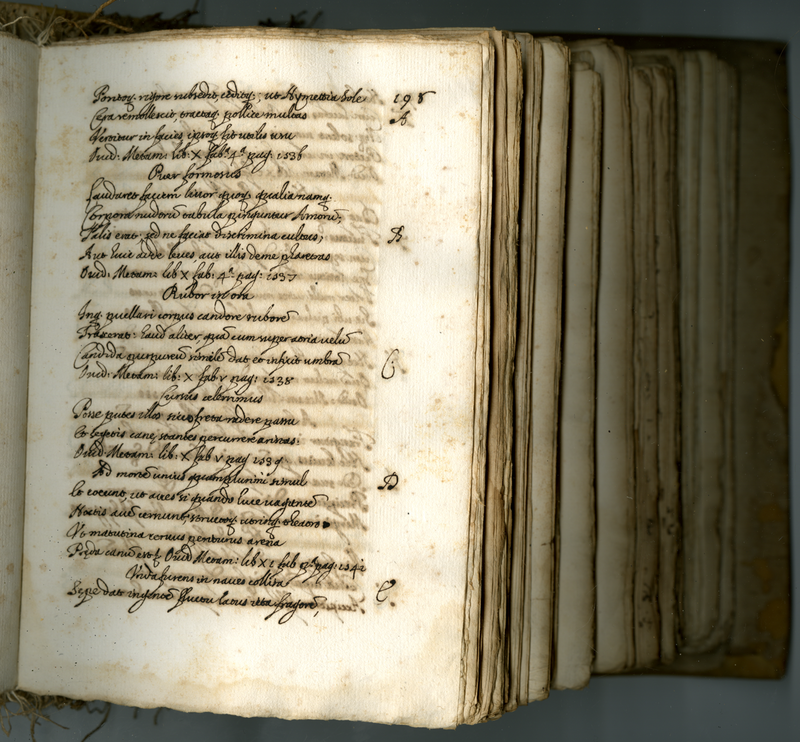 Ponitoq; rigore subsedit, ceditq;, ut Hymettia sole 198
Cera remollescit, tractataq; pollice multas A
Vertitur in facies, ipsoq; fit utilis usu
Ouid: Metam: lib: X fab: 4ª pag: 1536
Puer formosus
Laudaret faciem liuor quoq; qualia namq;
Corpora nudorũ tabula pinguntur Amorũ,
Talis erat; sed ne faciat discrimina cultus; B
Aut huic adde leues, aut illis deme pharetras
Ouid: Metam: lib X fab: 4ª pag: 1537
Rubor in ora
Inq; puellari corpus candore ruborẽ
Traxerat: haud aliter, quã cum super atria uelũ
Candida purpureũ similẽ dat et inficit umbrã C
Ouid: Metam: lib: X fab V pag: 1538
Cursus celerrimus
Posse putes illos sicco freta radere passu
Et segetis canę stantes percurrere aristas.
Ouid Metam: lib: X fab V pag 1539
Ad mortẽ unius quamplurimi simul D
Et coeunt, ut aues si quando luce uagantẽ
Noctis auẽ cernunt, structoq; utrinq; theatro
Vt matutina ceruus periturus arena
Pręda canũ est Ouid Metam: lib XI fab pª pag: 1542
Vnda furens in naues collisa E
Sepe dat ingentẽ fluctu latus icta fragorẽ,